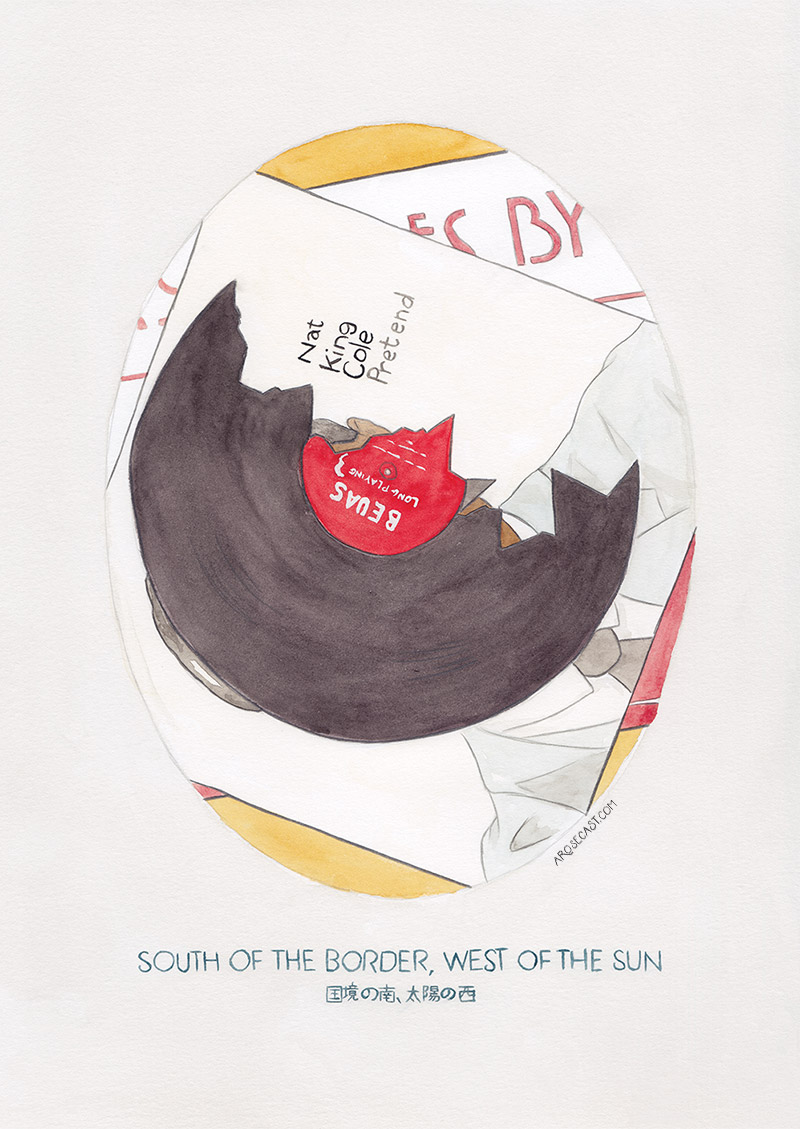 ES BY
Nat
King
Cole
Pretend
BEUAS
LONG PLAYING
AROSECAST.COM
SOUTH OF THE BORDER, WEST OF THE SUN
国境の南、太陽の西